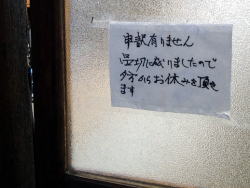 申訳有りません
品切に成りましたので
夕方からお休みを頂き
ます